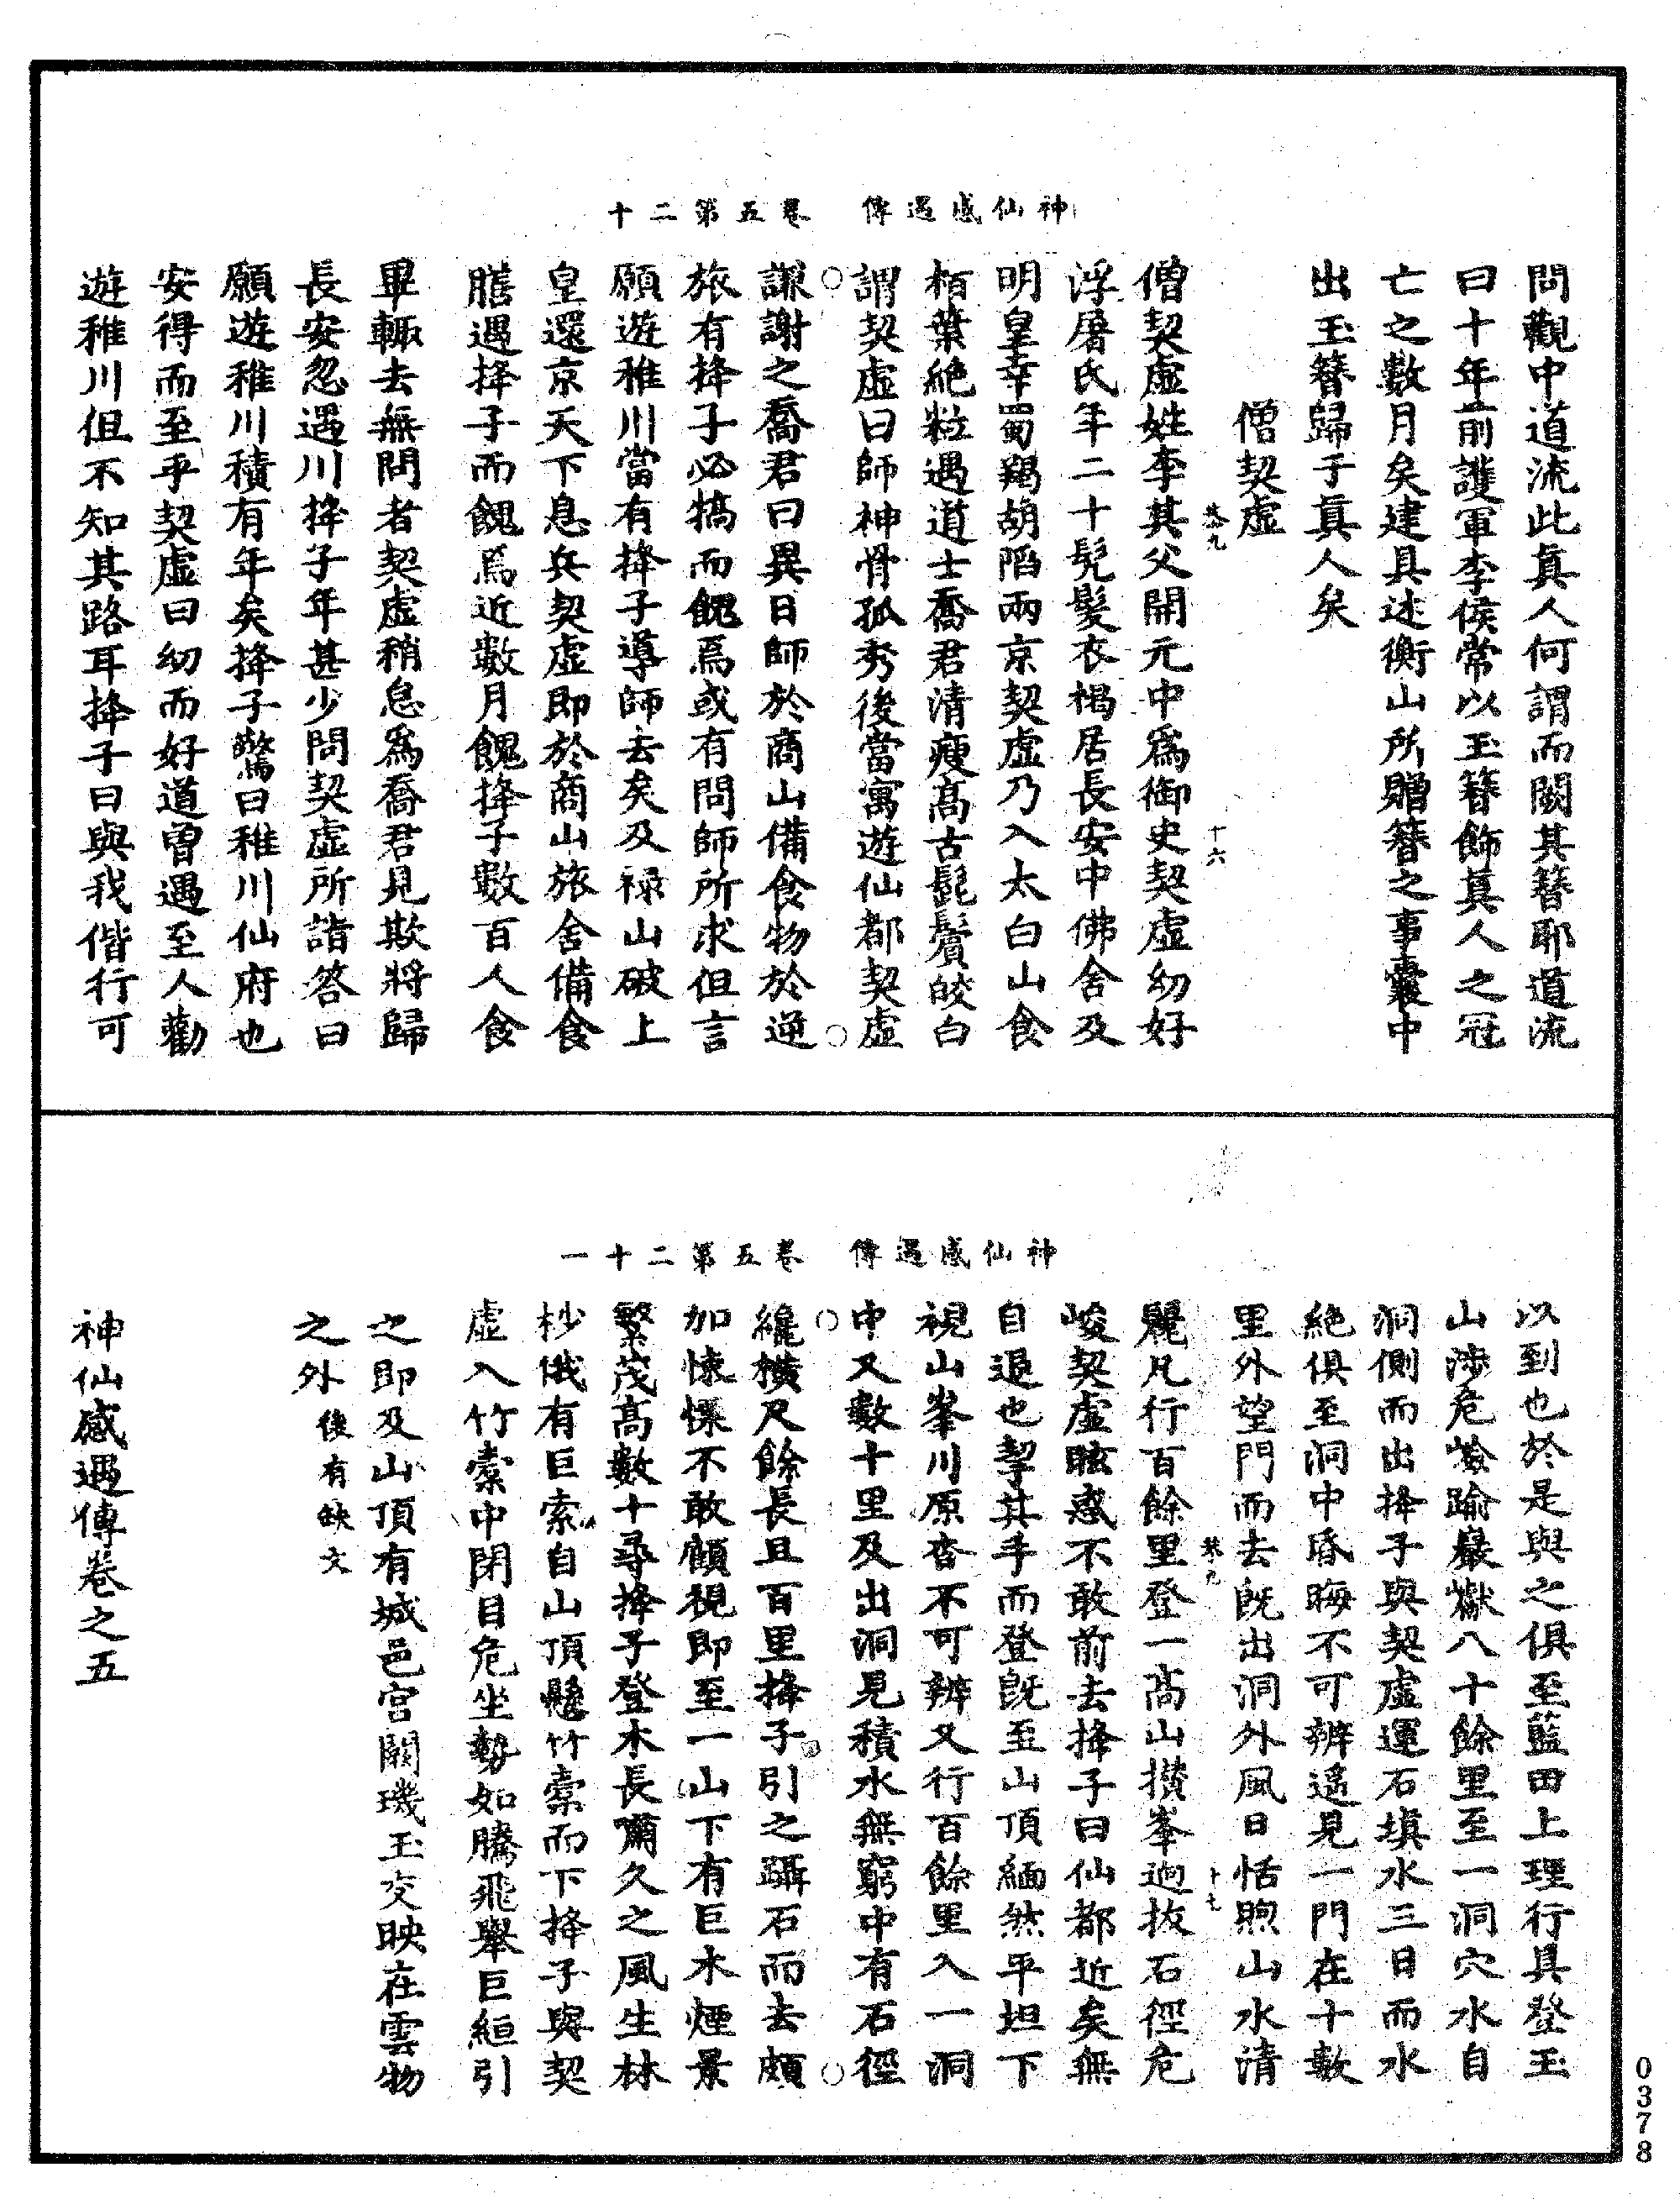 神仙感遇傳　卷五第二十
問觀中道流此真人何謂而闕其簪耶道流
曰十年前護軍李侯常以玉簪飾真人之冠
亡之數月矣建具述衡山所贈簪之事囊中
出玉簪歸于真人矣
僧契虛
恭九
十六
僧契虛姓李其父開元中爲御史契虛幼好
浮屠氏年二十髡髮衣褐居長安中佛舍及
明皇幸蜀羯胡陷兩京契虛乃入太白山食
栢葉絶粒遇道士喬君清瘦髙古髭鬢皎白
謂契虛曰師神骨孤秀後當寓遊仙都契虛
謙謝之喬君曰異日師於商山備食物於逆
旅有捀子必犒而餽焉或有問師所求但言
願遊稚川當有捀子導師去矣及禄山破上
皇還京天下息兵契虛即於商山旅舍備食
膳遇捀子而餽焉近數月餽捀子數百人食
畢輙去無問者契虛稍怠爲喬君見欺將歸
長安忽遇川捀子年甚少問契虛所詣答曰
願遊稚川積有年矣捀子驚曰稚川仙府也
安得而至乎契虛曰幼而好道曽遇至人勸
遊稚川但不知其路耳捀子曰與我偕行可
神仙感遇傳　卷五第二十一
以到也於是與之俱至藍田上理行具登玉
山涉危嶮踰巖巘八十餘里至一洞穴水自
洞側而出捀子與契虛運石填水三日而水
絶俱至洞中昏晦不可辨遥見一門在十數
里外望門而去既出洞外風日恬煦山水清
恭九
十七
麗凡行百餘里登一髙山攅峯迥拔石徑危
峻契虛眩惑不敢前去捀子曰仙都近矣無
自退也挈其手而登既至山頂緬然平坦下
視山峯川原杳不可辨又行百餘里入一洞
中又數十里及出洞見積水無窮中有石徑
纔横尺餘長且百里捀子引之躡石而去頗
加悚慄不敢顧視即至一山下有巨木煙景
繁茂髙數十尋捀子登木長嘯久之風生林
杪俄有巨索自山頂懸竹橐而下捀子與契
虛入竹橐中閉目危坐勢如騰飛舉巨絙引
之即及山頂有城邑宫闕璣玉交映在雲物
之外後有缺文
神仙感遇傳卷之五
0378